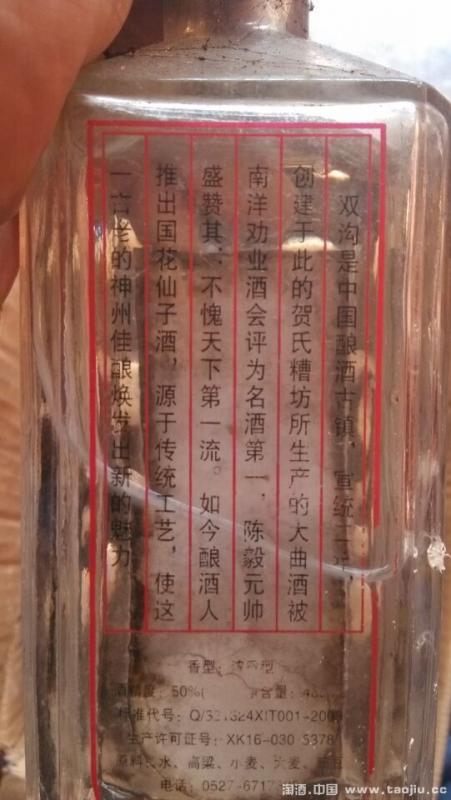 双沟是中国酿酒古镇，宣统二年，
创建于此的贺氏糟坊所生产的大曲酒被
南洋劝业酒会评为名酒第一，陈毅元帅
盛赞其：不愧天下第一流。如今酿酒人
推出国花仙子酒，源于传统工艺，使这
一古老的神州佳酿焕发出新的魅力
香型：浓香型
酒精度：50%(
标准代号：Q/321324XIT001-200
生产许可证号：XK16-030 5378
原料：水、高粱、小麦、大麦、豌豆
电话：0527-6717
淘酒.中国 www.taojiu.cc